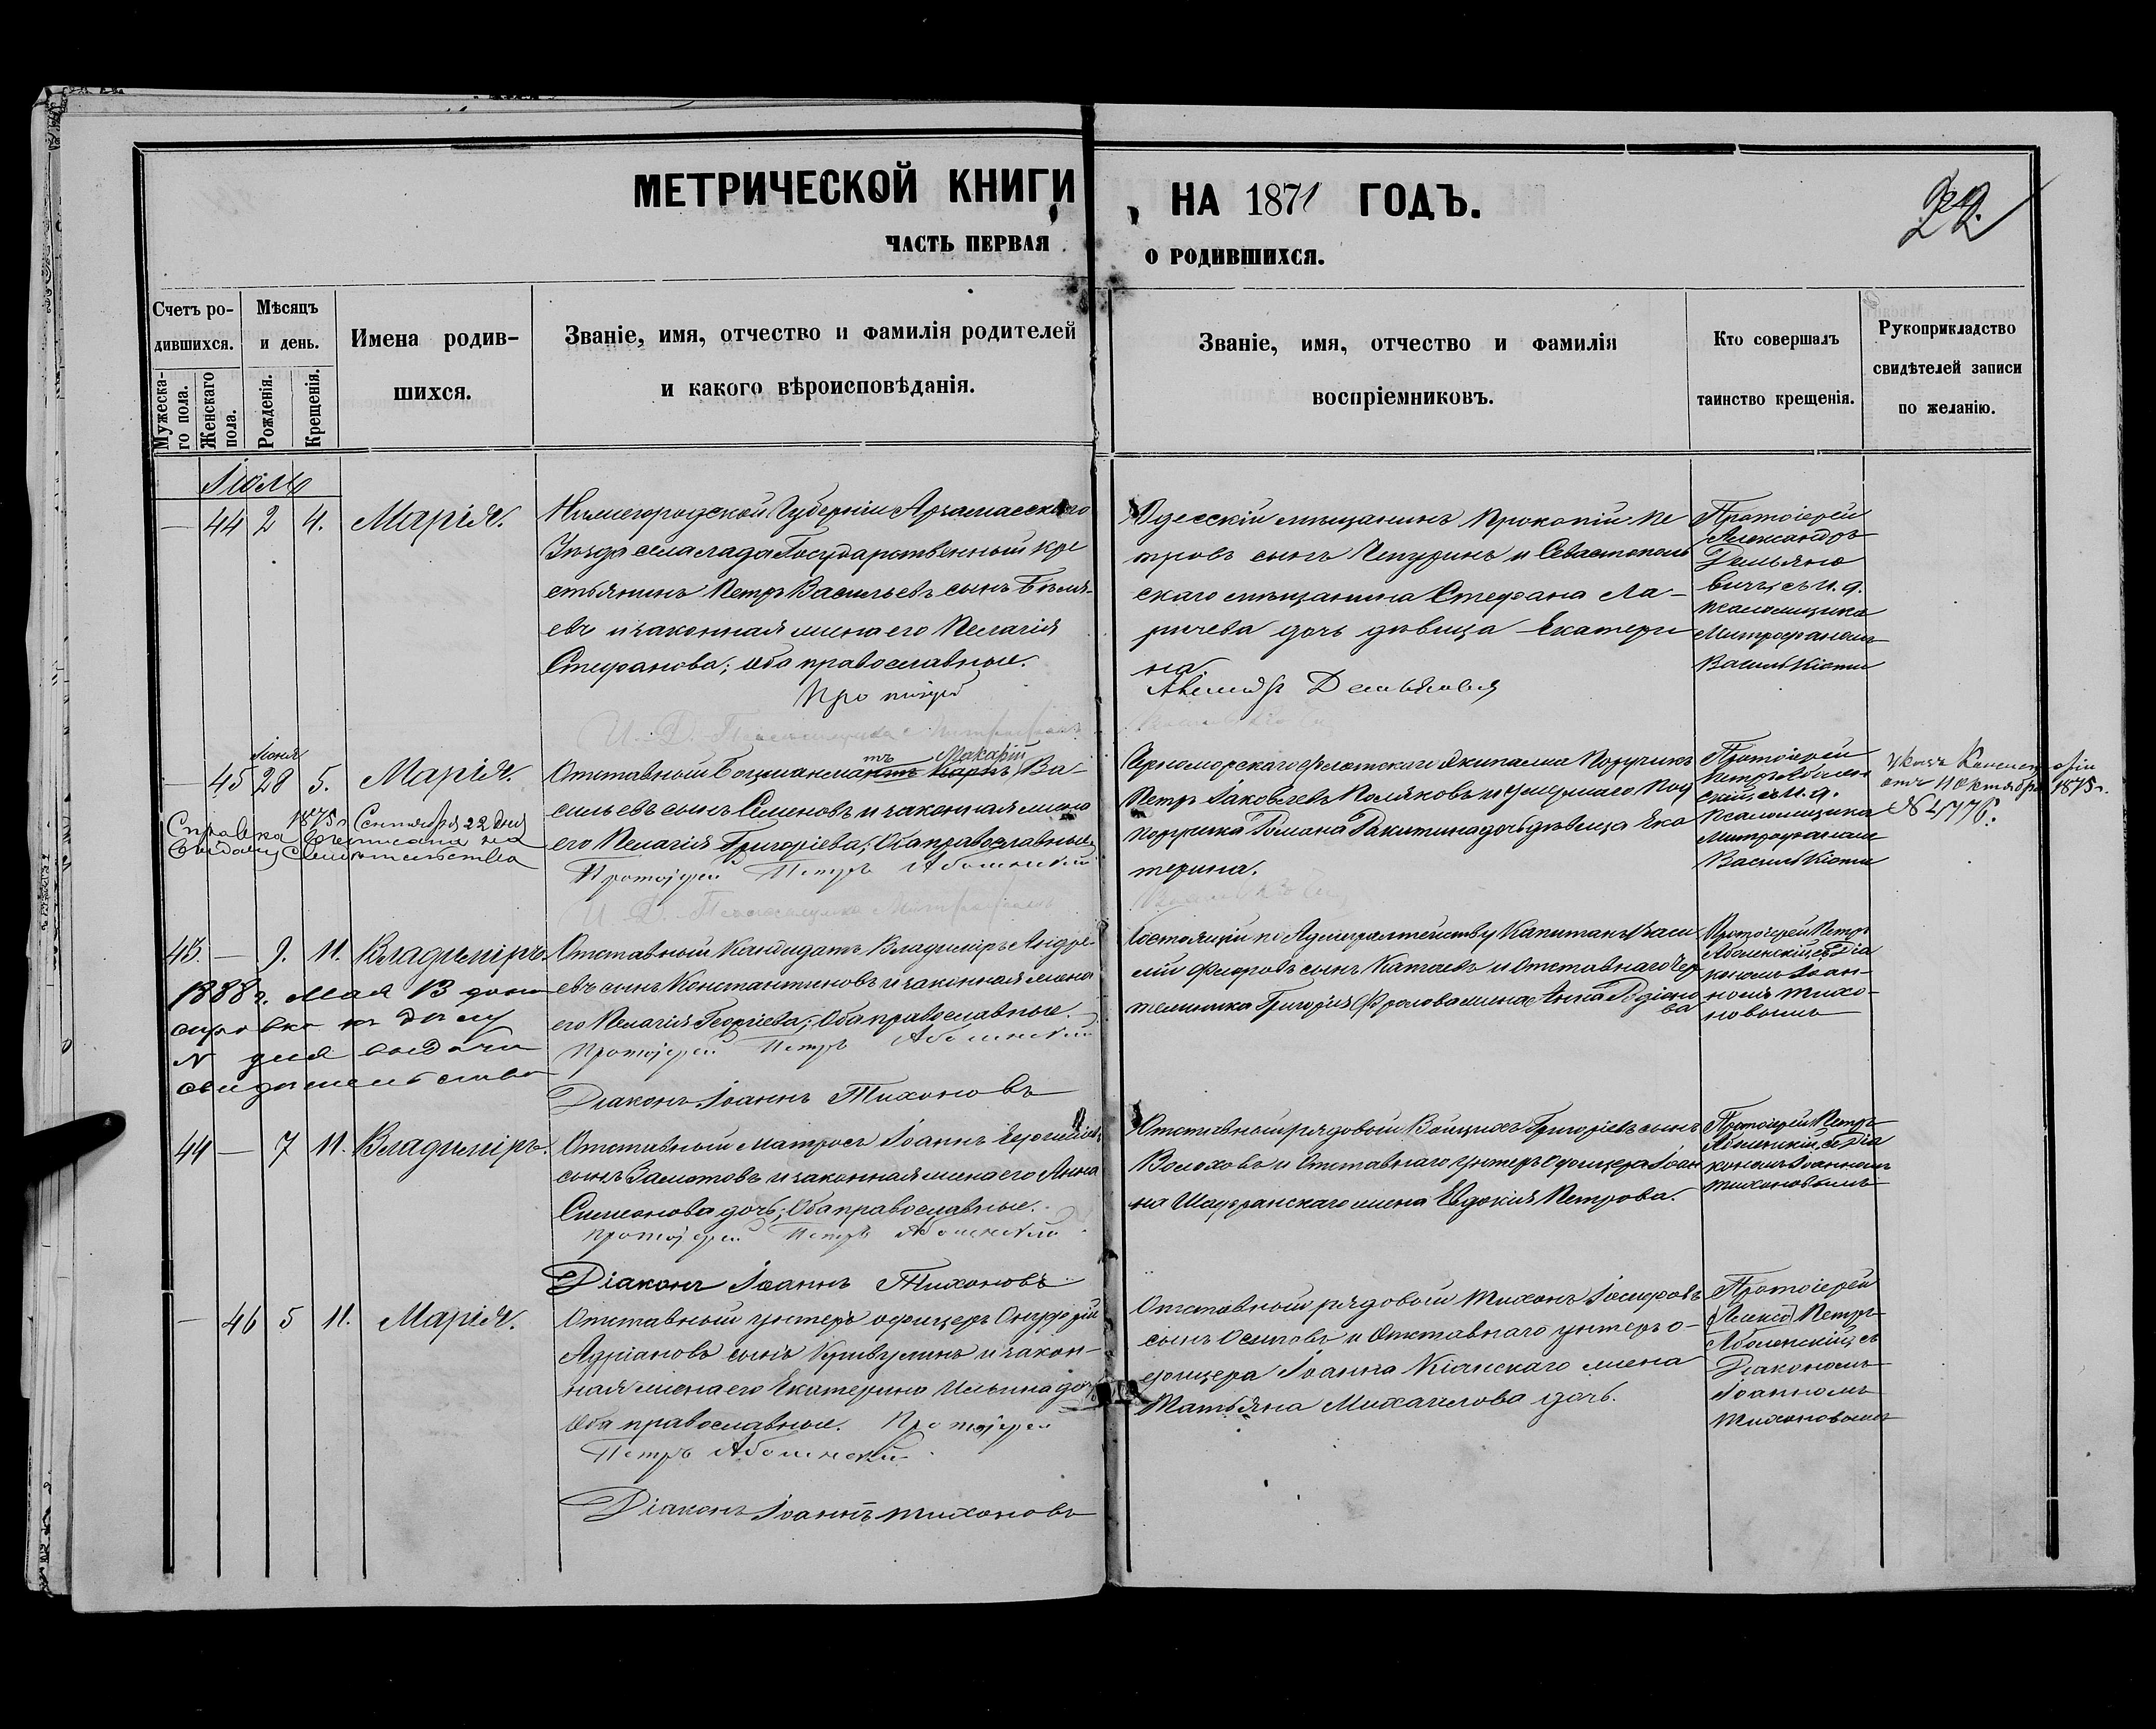 МЕТРИЧЕСКОЙ КНИГИ НА 1871 ГОДЪ.
22
ЧАСТЬ ПЕРВАЯ О РОДИВШИХСЯ.
Счетъ ро-
дившихся.
Мужеска-
го пола.
Женскаго
пола.
Мѣсяцъ
и день.
Рожденія.
Крещенія.
Имена родив-
шихся.
Званіе, имя, отчество и фамилія родителей
и какого вѣроисповѣданія.
Званіе, имя, отчество и фамилія
воспріемниковъ.
Кто совершалъ
таинство крещенія.
Рукоприкладство
свидѣтелей записи
по желанію.
Іюль
— 44 2 4. Марія.
Нижегородской Губерніи Арзамасскаго
Уѣзда села Лада Государственный кре
стьянинъ Петръ Васильевъ сынъ Бѣля-
евъ и законная жена его Пелагія
Стефанова; оба православные.
Протоіерей
Одесскій мѣщанинъ Прокопій Пе
тровъ сынъ Чепуринъ и Севастополь
скаго мѣщанина Стефана Ла-
ричева дочь дѣвица Екатери
на.
Протоіерей
Александръ
Демьяно
вичъ съ и. д.
псаломщика
Митрофаномъ
И. Д. Псаломщика Митрофанъ
— 45 Іюня 28 5. Марія.
Отставный Боцманматъ Макарій Ва-
сильевъ сынъ Семеновъ и законная жена
его Пелагія Григоріева; Оба православные
Протоіерей Петръ
И. Д. Псаломщика Митрофанъ
Черноморскаго флотскаго экипажа Поручикъ
Петръ Іаковлевъ Поляковъ и умершаго Под
поручика Романа Ракитина дочь дѣвица Ека
терина.
Протоіерей
Петръ
съ и. д.
Псаломщика
Митрофаномъ
Указъ Консисторіи
отъ 11 Октября 1875 г.
№ 4776.
1875 г. Сентября 22 дня
Справка
свидѣтельства
43. — 9. 11. Владиміръ.
Отставный Кандидатъ Владиміръ Андре-
евъ сынъ Константиновъ и законная жена
его Пелагія Георгіева; Оба православные.
Протоіерей Петръ
Діаконъ Іоаннъ Тихоновъ
Состоящій по Адмиралтейству Капитанъ Васи
лій Федоровъ сынъ Катаевъ и Отставнаго Чер
тежника Григорія Фролова жена Анна Родіоно
ва
Протоіерей Петръ
съ Діа
кономъ Іоан-
номъ Тихо-
новымъ
1888 г. Мая 13 дня
справка къ дѣлу
№ для выдачи
свидѣтельства
44 — 7 11. Владиміръ.
Отставный матросъ Іоаннъ
сынъ Замотовъ и законная жена его Анна
Симеонова дочь; Оба православные.
Протоіерей Петръ
Діаконъ Іоаннъ Тихоновъ
Отставный рядовый Войцихъ Григоріевъ сынъ
Волоховъ и Отставнаго унтеръ Офицера Іоан
на Шафранскаго жена Евдокія Петрова.
Протоіерей Петръ
съ Діа
кономъ Іоанномъ
Тихоновымъ
— 46 5 11. Марія.
Отставный унтеръ офицеръ Онуфрій
Адріановъ сынъ Кривулинъ и закон-
ная жена его Екатерина Ильина дочь
Оба православные. Протоіерей
Петръ
Діаконъ Іоаннъ Тихоновъ
Отставный рядовый Тихонъ Іосифовъ
сынъ Осиповъ и Отставнаго унтеръ о-
фицера Іоанна Кіянскаго жена
Татьяна Михаилова дочь.
Протоіерей
Петръ
съ
Діакономъ
Іоанномъ
Тихоновымъ